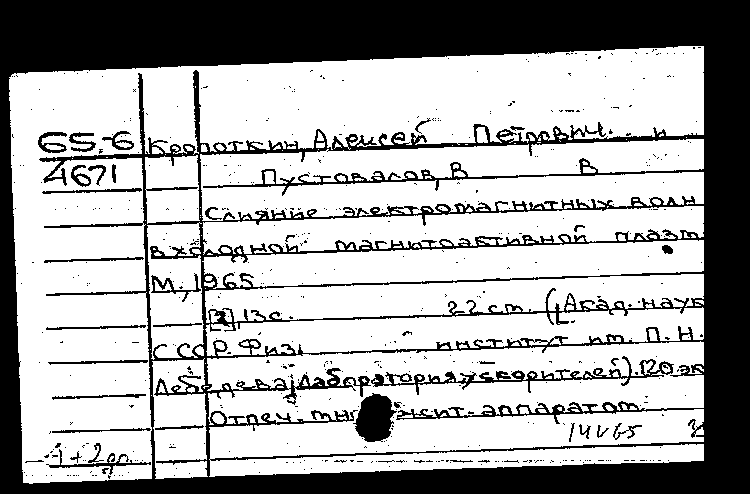 65.-6 Кропоткин, Алексей Петрович. и
4671 Пустовалов, В В
Слияние электромагнитных волн
в холодной магнитоактивной плазм
М., 1965
13с. 22 см. (Акад. наук
СССР. Физ. институт им. П. Н.
Лебедева, Лаборатория ускорителей). 120 эк
Отпеч. аппаратом
14 V 65